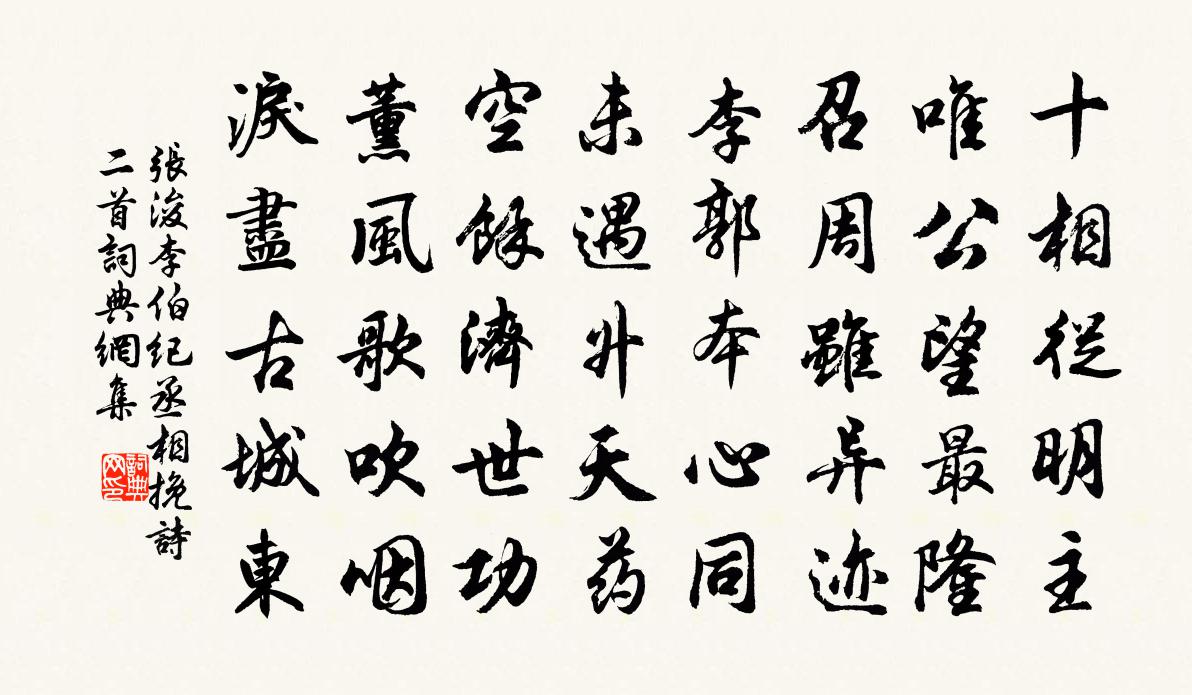 十相從明主
唯公望最隆
召周雖异迹
李郭本心同
未遇升天药
空餘濟世功
薰風歌吹咽
淚盡古城東
張浚李伯紀丞相挽詩
二首詞典網集
詞典
网印